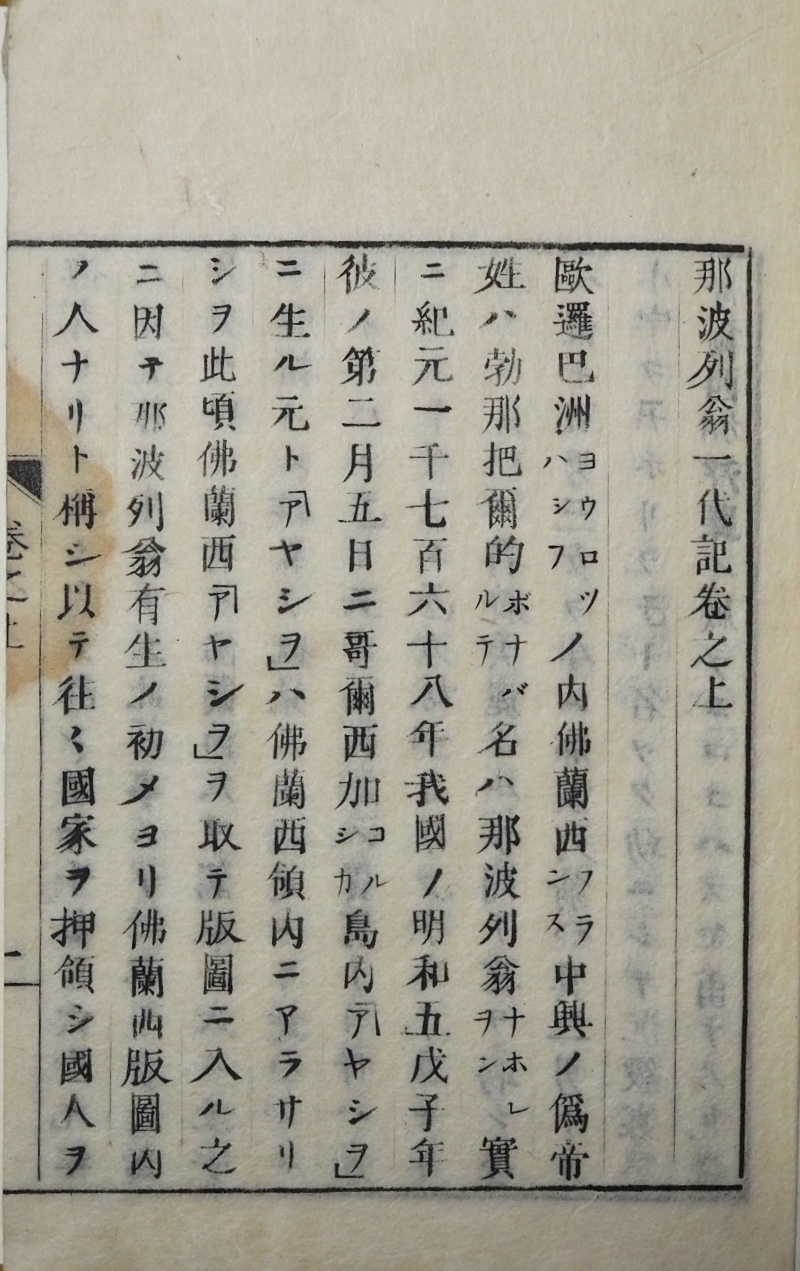 那波列翁一代記卷之上
歐邏巴洲ヨウロツハシフノ内佛蘭西フランス中興ノ僞帝
姓ハ勃那把爾的ボナバルテ名ハ那波列翁ナホレヲン實
ニ紀元一千七百六十八年我國ノ明和五戊子年
彼ノ第二月五日ニ哥爾西加コルシカ島内「アヤシヲ」
ニ生ル元ト「アヤシヲ」ハ佛蘭西領内ニアラサリ
シヲ此頃佛蘭西「アヤシヲ」ヲ取テ版圖ニ入ル之
ニ因テ那波列翁有生ノ初メヨリ佛蘭西版圖内
ノ人ナリト稱シ以テ往〻國家ヲ押領シ國人ヲ
卷之上
二